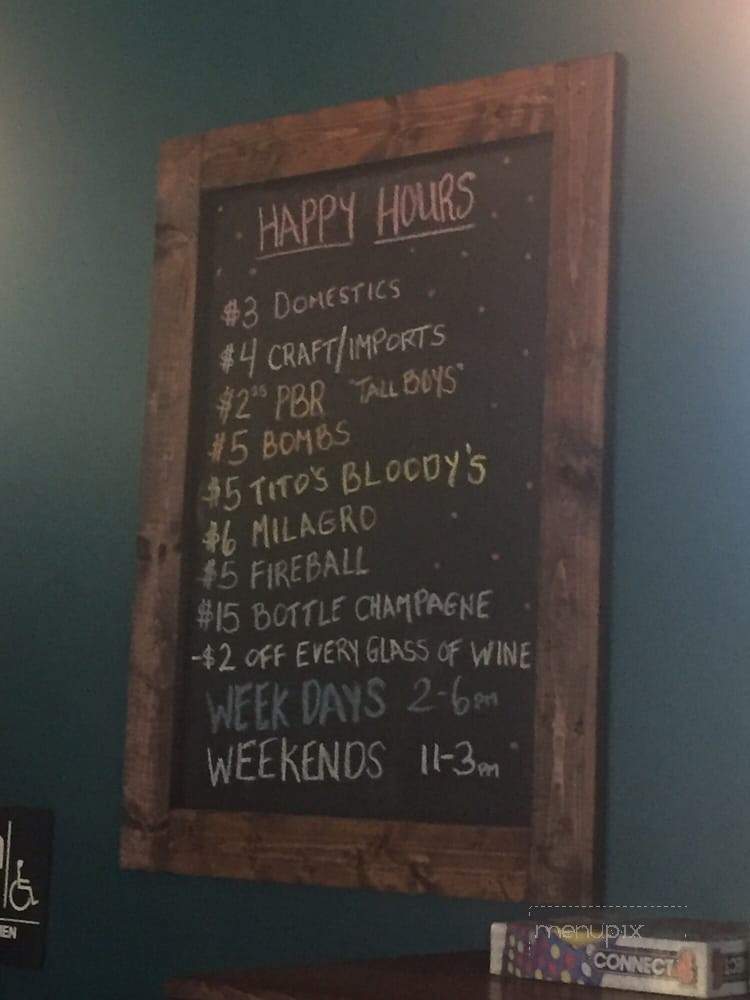 HAPPY HOURS
$3 DOMESTICS
$4 CRAFT/IMPORTS
PBR "TALL BOYS"
$5 BOMBS
$5 TITO'S BLOODY'S
$6 MILAGRO
$5 FIREBALL
$15 BOTTLE CHAMPAGNE
-$2 OFF EVERY GLASS OF WINE
WEEK DAYS 2-6pm
WEEKENDS 11-3pm
menupix
CONNECT 4